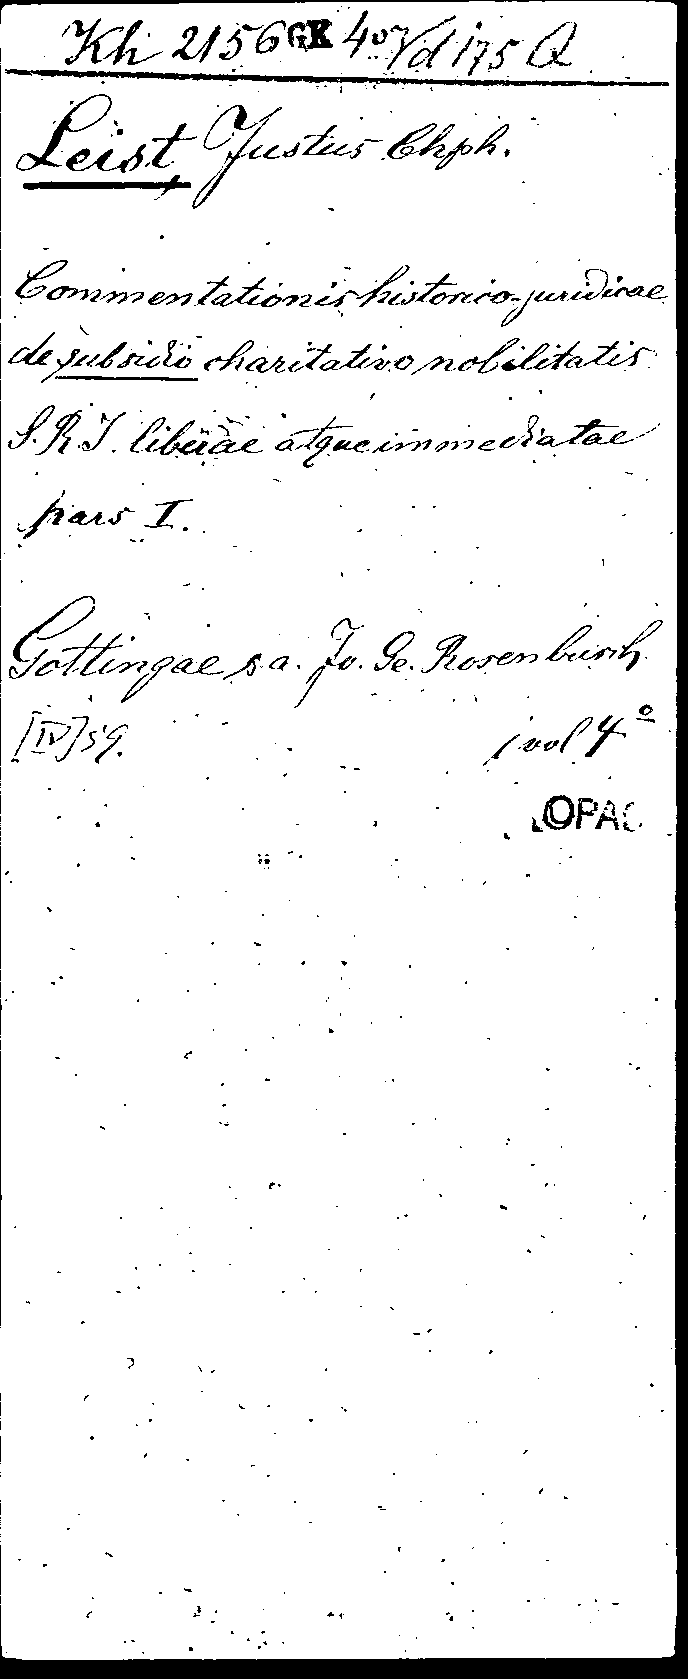 Kh 2156 GK 4° Vd 175 Q
Leist, Justus Chph.
Commentationis historico-juridicae
de subsidio charitativo nobilitatis
S. R. I. liberae atque immediatae
pars I.
Gottingae s a. Jo. Ge. Rosenbusch
[IV] 59. 1 vol 4°
OPAC